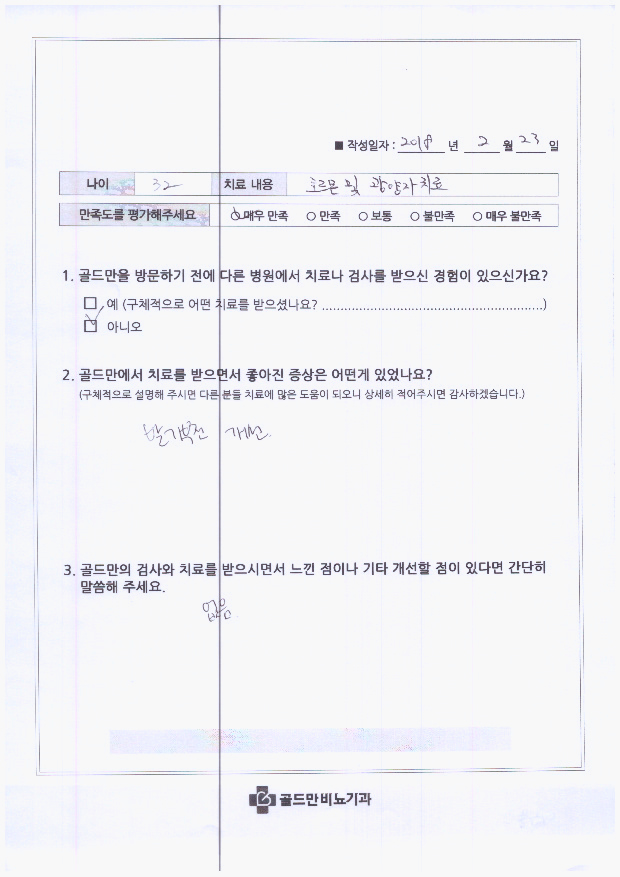 ■ 작성일자 : 2018 년 2 월 23 일
나이 32 치료 내용 호르몬 및 광양자치료
만족도를 평가해주세요 ○ 매우 만족 ○ 만족 ○ 보통 ○ 불만족 ○ 매우 불만족
1. 골드만을 방문하기 전에 다른 병원에서 치료나 검사를 받으신 경험이 있으신가요?
□ 예 (구체적으로 어떤 치료를 받으셨나요? ............................................................)
☑ 아니오
2. 골드만에서 치료를 받으면서 좋아진 증상은 어떤게 있었나요?
(구체적으로 설명해 주시면 다른 분들 치료에 많은 도움이 되오니 상세히 적어주시면 감사하겠습니다.)
발기부전 개선.
3. 골드만의 검사와 치료를 받으시면서 느낀 점이나 기타 개선할 점이 있다면 간단히
말씀해 주세요.
없음.
골드만비뇨기과